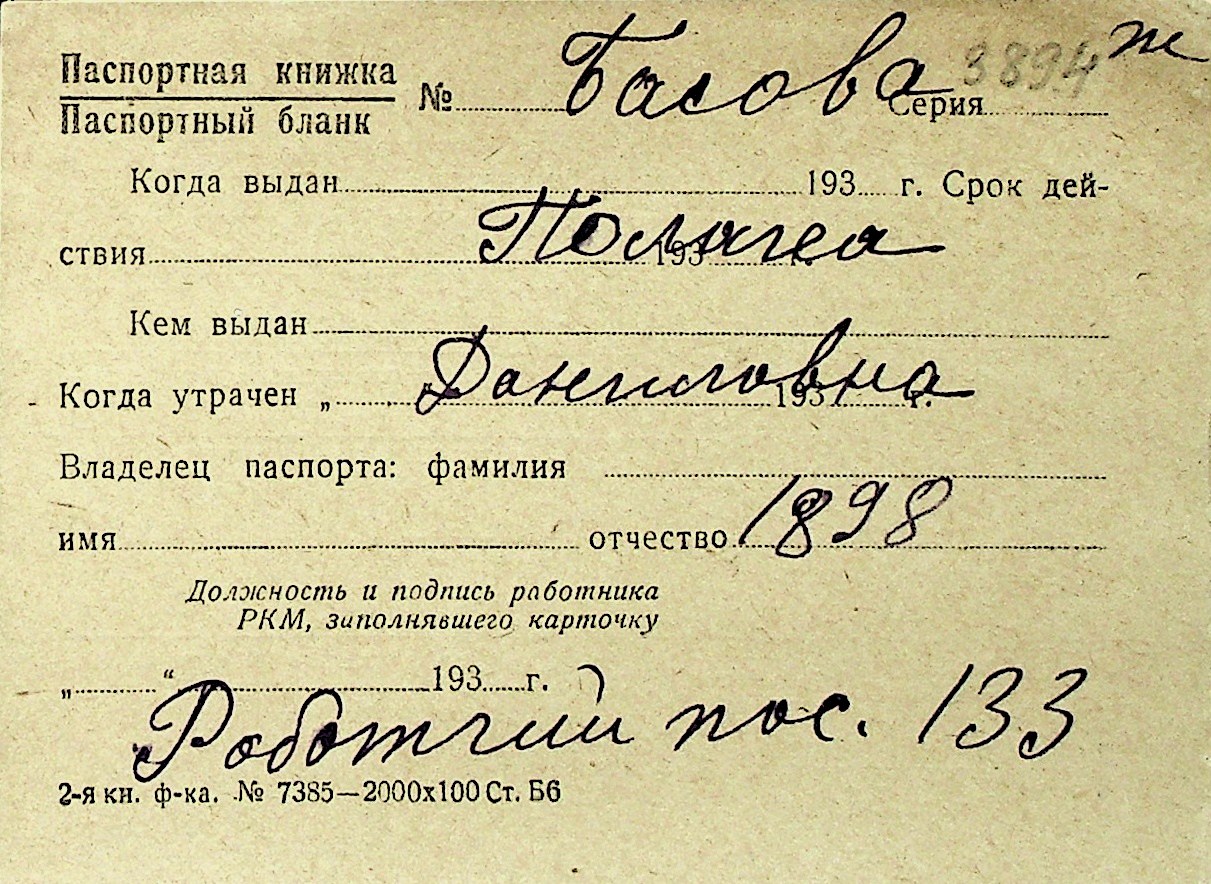 Паспортная книжка
Паспортный бланк № Басова Серия 3894 ж
Когда выдан 193 г. Срок дей-
ствия 193 г.
Полагеа
Кем выдан
Даниловна
Когда утрачен „ “ 193 г.
Владелец паспорта: фамилия
имя отчество 1898
Должность и подпись работника
РКМ, заполнявшего карточку
„ “ 193 г.
Работчий пос. 133
2-я кн. ф-ка. № 7385—2000х100 Ст. Б6